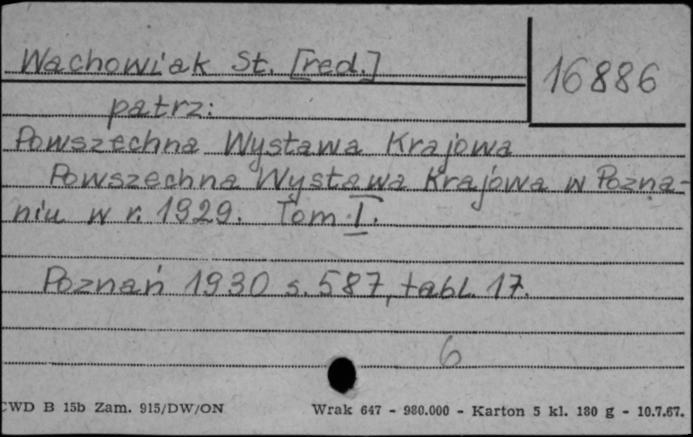 Wachowiak St. [red.]
16886
patrz:
Powszechna Wystawa Krajowa
Powszechna Wystawa Krajowa w Pozna-
niu w r. 1929. Tom I.
Poznań 1930 s. 587, tabl. 17.
6
CWD B 15b Zam. 915/DW/ON
Wrak 647 - 980.000 - Karton 5 kl. 180 g - 10.7.67.